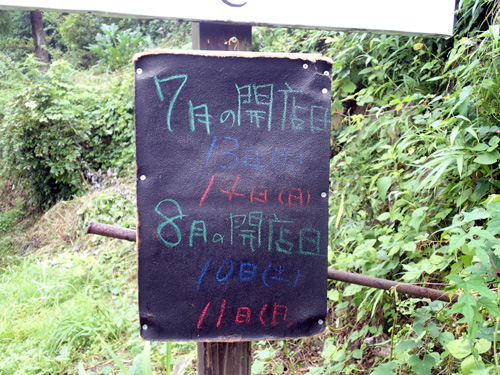 7月の開店日
13日(土)
14日(日)
8月の開店日
10日(土)
11日(日